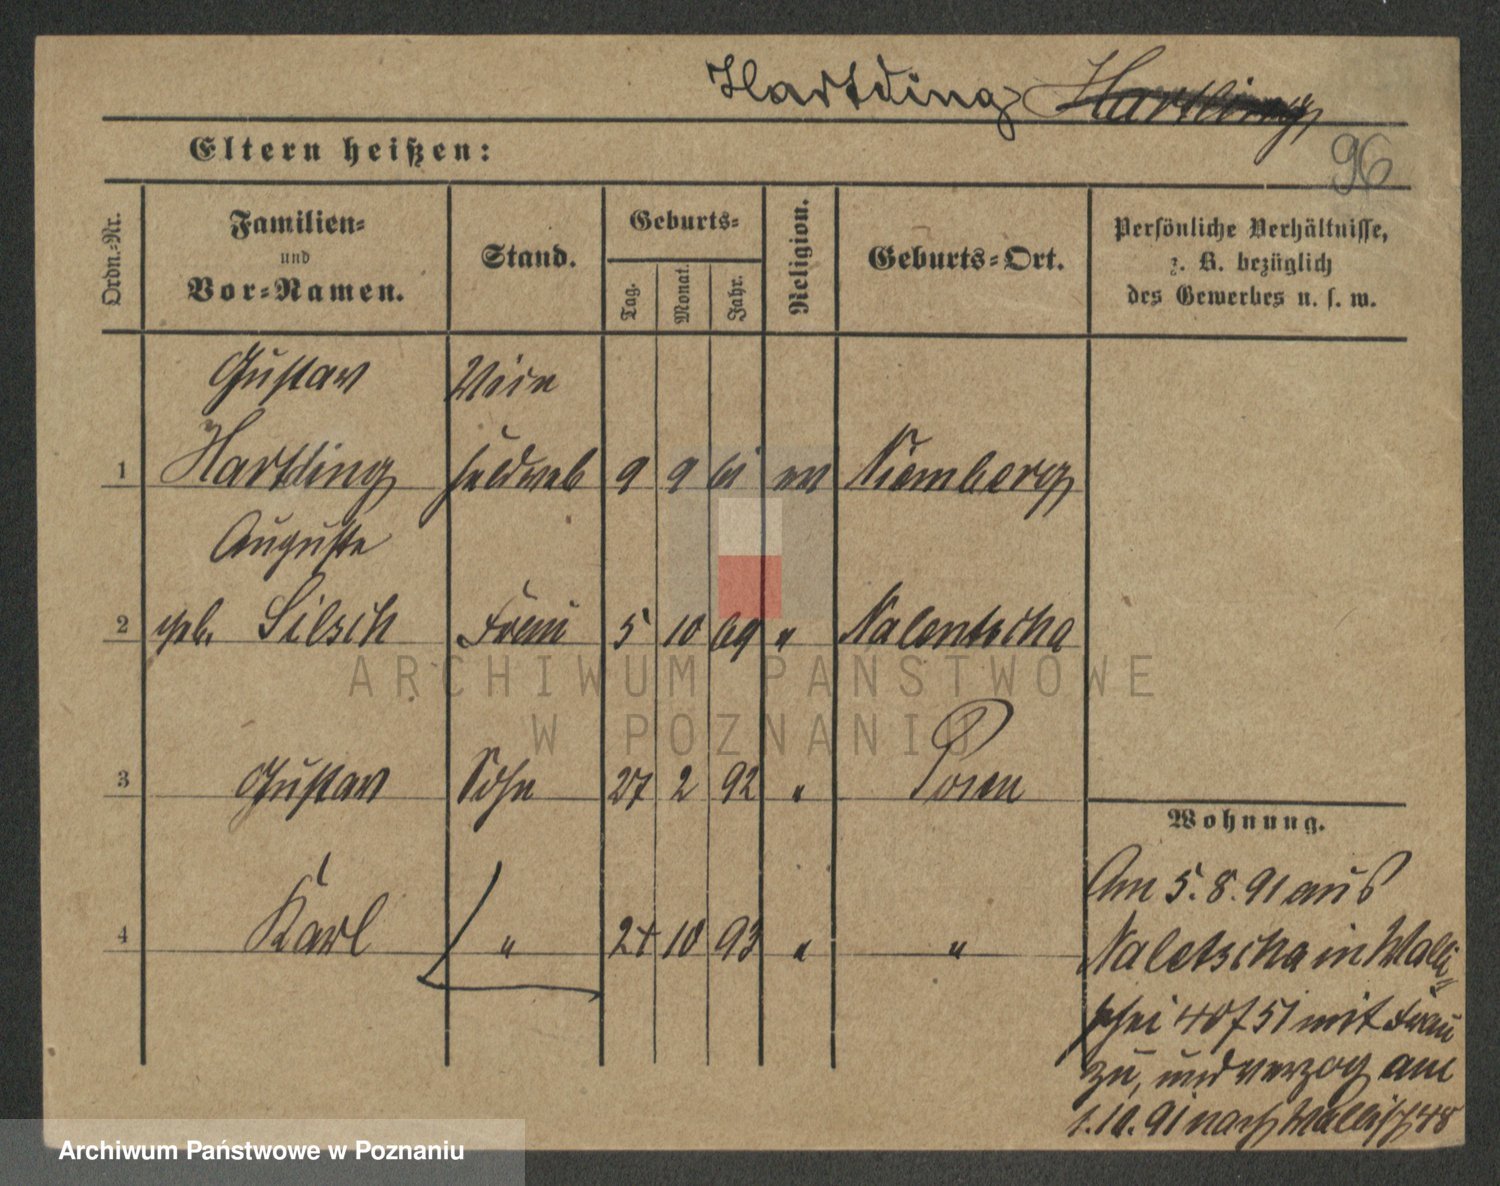 Hartding Hartling
96
Eltern heißen:
Ordn.-Nr.
Familien-
und
Vor-Namen.
Stand.
Geburts-
Tag.
Monat.
Jahr.
Religion.
Geburts-Ort.
Persönliche Verhältnisse,
z. B. bezüglich
des Gewerbes u. s. w.
Gustav
1 Hartding 9 9 ev Niemberg
Auguste
2 geb. Silsch Frau 5 10 69 " Nalentscha
3 Gustav Sohn 27 2 92 " Posen
4 Karl " 24 10 93 " "
Wohnung.
Am 5.8.91 aus
Naletscha in Walli-
schei mit Frau
zu, und verzog am
1.10.91 nach Wallisch 48
ARCHIWUM PAŃSTWOWE
W POZNANIU
Archiwum Państwowe w Poznaniu